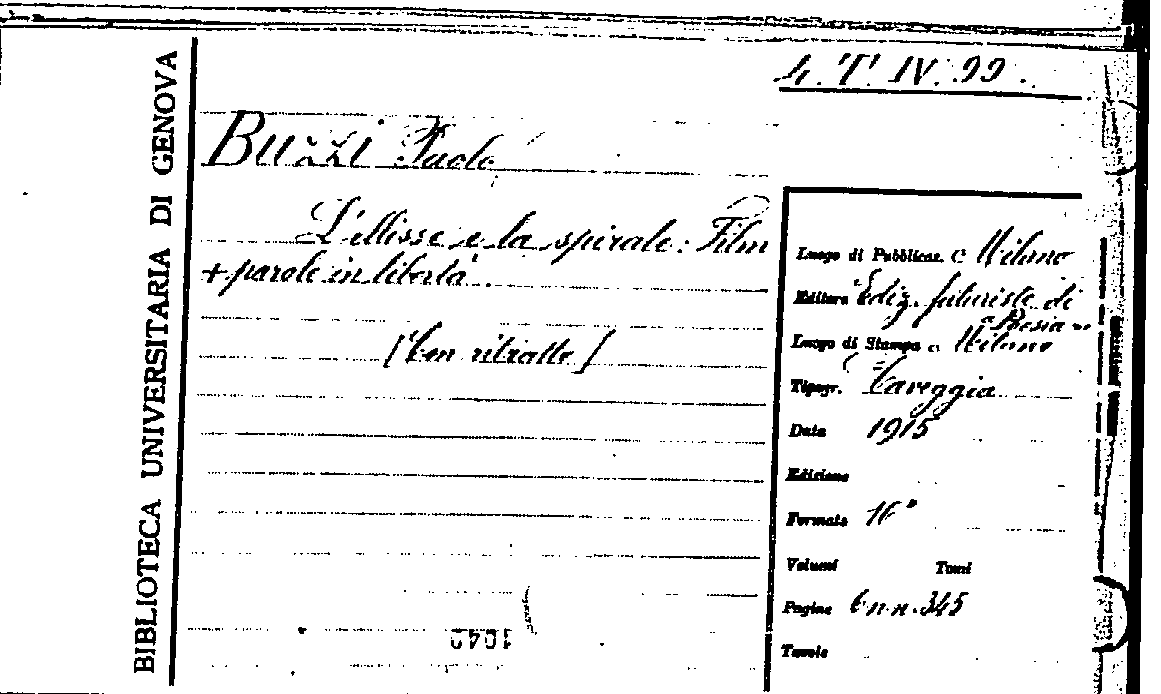 BIBLIOTECA UNIVERSITARIA DI GENOVA
4. T. IV. 99.
Buzzi Paolo
L'ellisse e la spirale: Film
+ parole in libertà.
[Con ritratto]
Luogo di Pubblicaz. Milano
Editore Ediz. futuriste di
"Poesia"
Luogo di Stampa Milano
Tipogr. Taveggia
Data 1915
Edizione
Formato 16°
Volumi Tomi
Pagine 6 n.n. 345
Tavole
1042